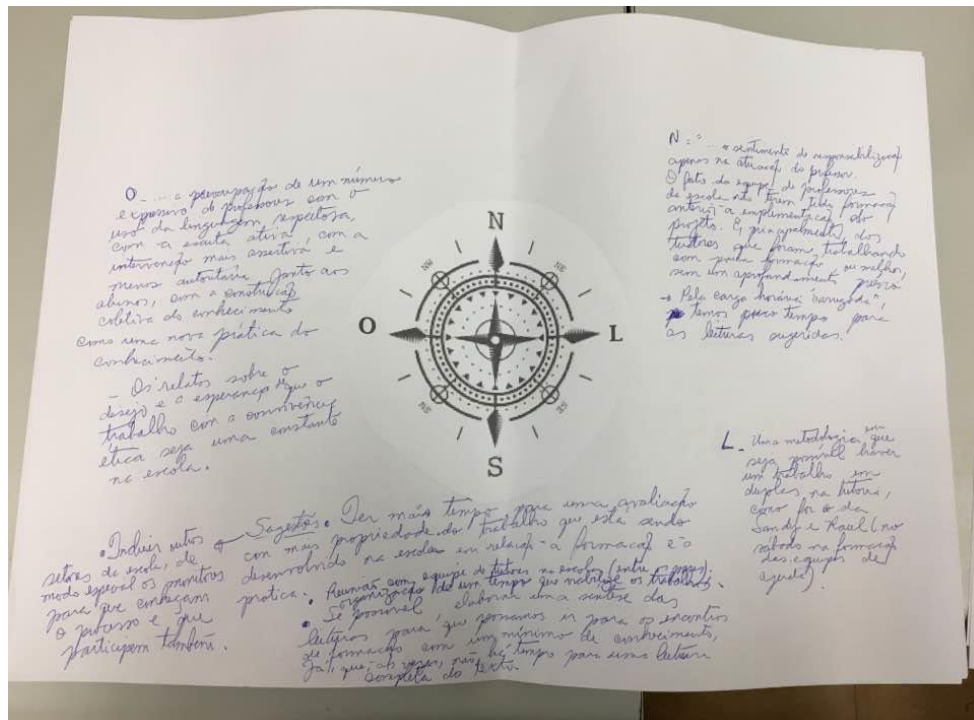 O - ... a preocupação de um número
expressivo de professores com o
uso da linguagem respeitosa,
com a escuta ativa, com a
intervenção mais assertiva e
menos autoritária junto aos
alunos, com a construção
coletiva do conhecimento
como uma nova prática do
conhecimento.
- Os relatos sobre o
desejo e a esperança que o
trabalho com a convivência
ética seja uma constante
na escola.
N: "... o sentimento de responsabilização
apenas na atuação do professor.
O fato da equipe de professores
da escola não terem tido formação
anterior a implementação do
projeto. E, principalmente, dos
tutores que foram trabalhando
com pouca formação ou melhor,
sem um aprofundamento prévio
→ Pela carga horária "carregada",
temos pouco tempo para
as leituras sugeridas.
N
NW
NE
O
L
SW
SE
S
L - Uma metodologia em que
seja possível haver
um trabalho em
duplas, na tutoria,
como foi o da
Sandy e Raul (no
sábado na formação
das equipes de
ajuda).
Sugestões • Ter mais tempo para uma avaliação
com mais propriedade do trabalho que está sendo
desenvolvido na escola em relação a formação e a
prática.
• Reunião com equipe de tutores na escola (entre
organização de um tempo que viabilize os trabalhos.
• Se possível, elaborar uma síntese das
leituras para que possamos ir para os encontros
de formação com um mínimo de conhecimento,
já que, às vezes, não há tempo para uma leitura
completa do texto
• Incluir outros
setores da escola, de
modo especial os monitores
para que conheçam
o processo e que
participem também.